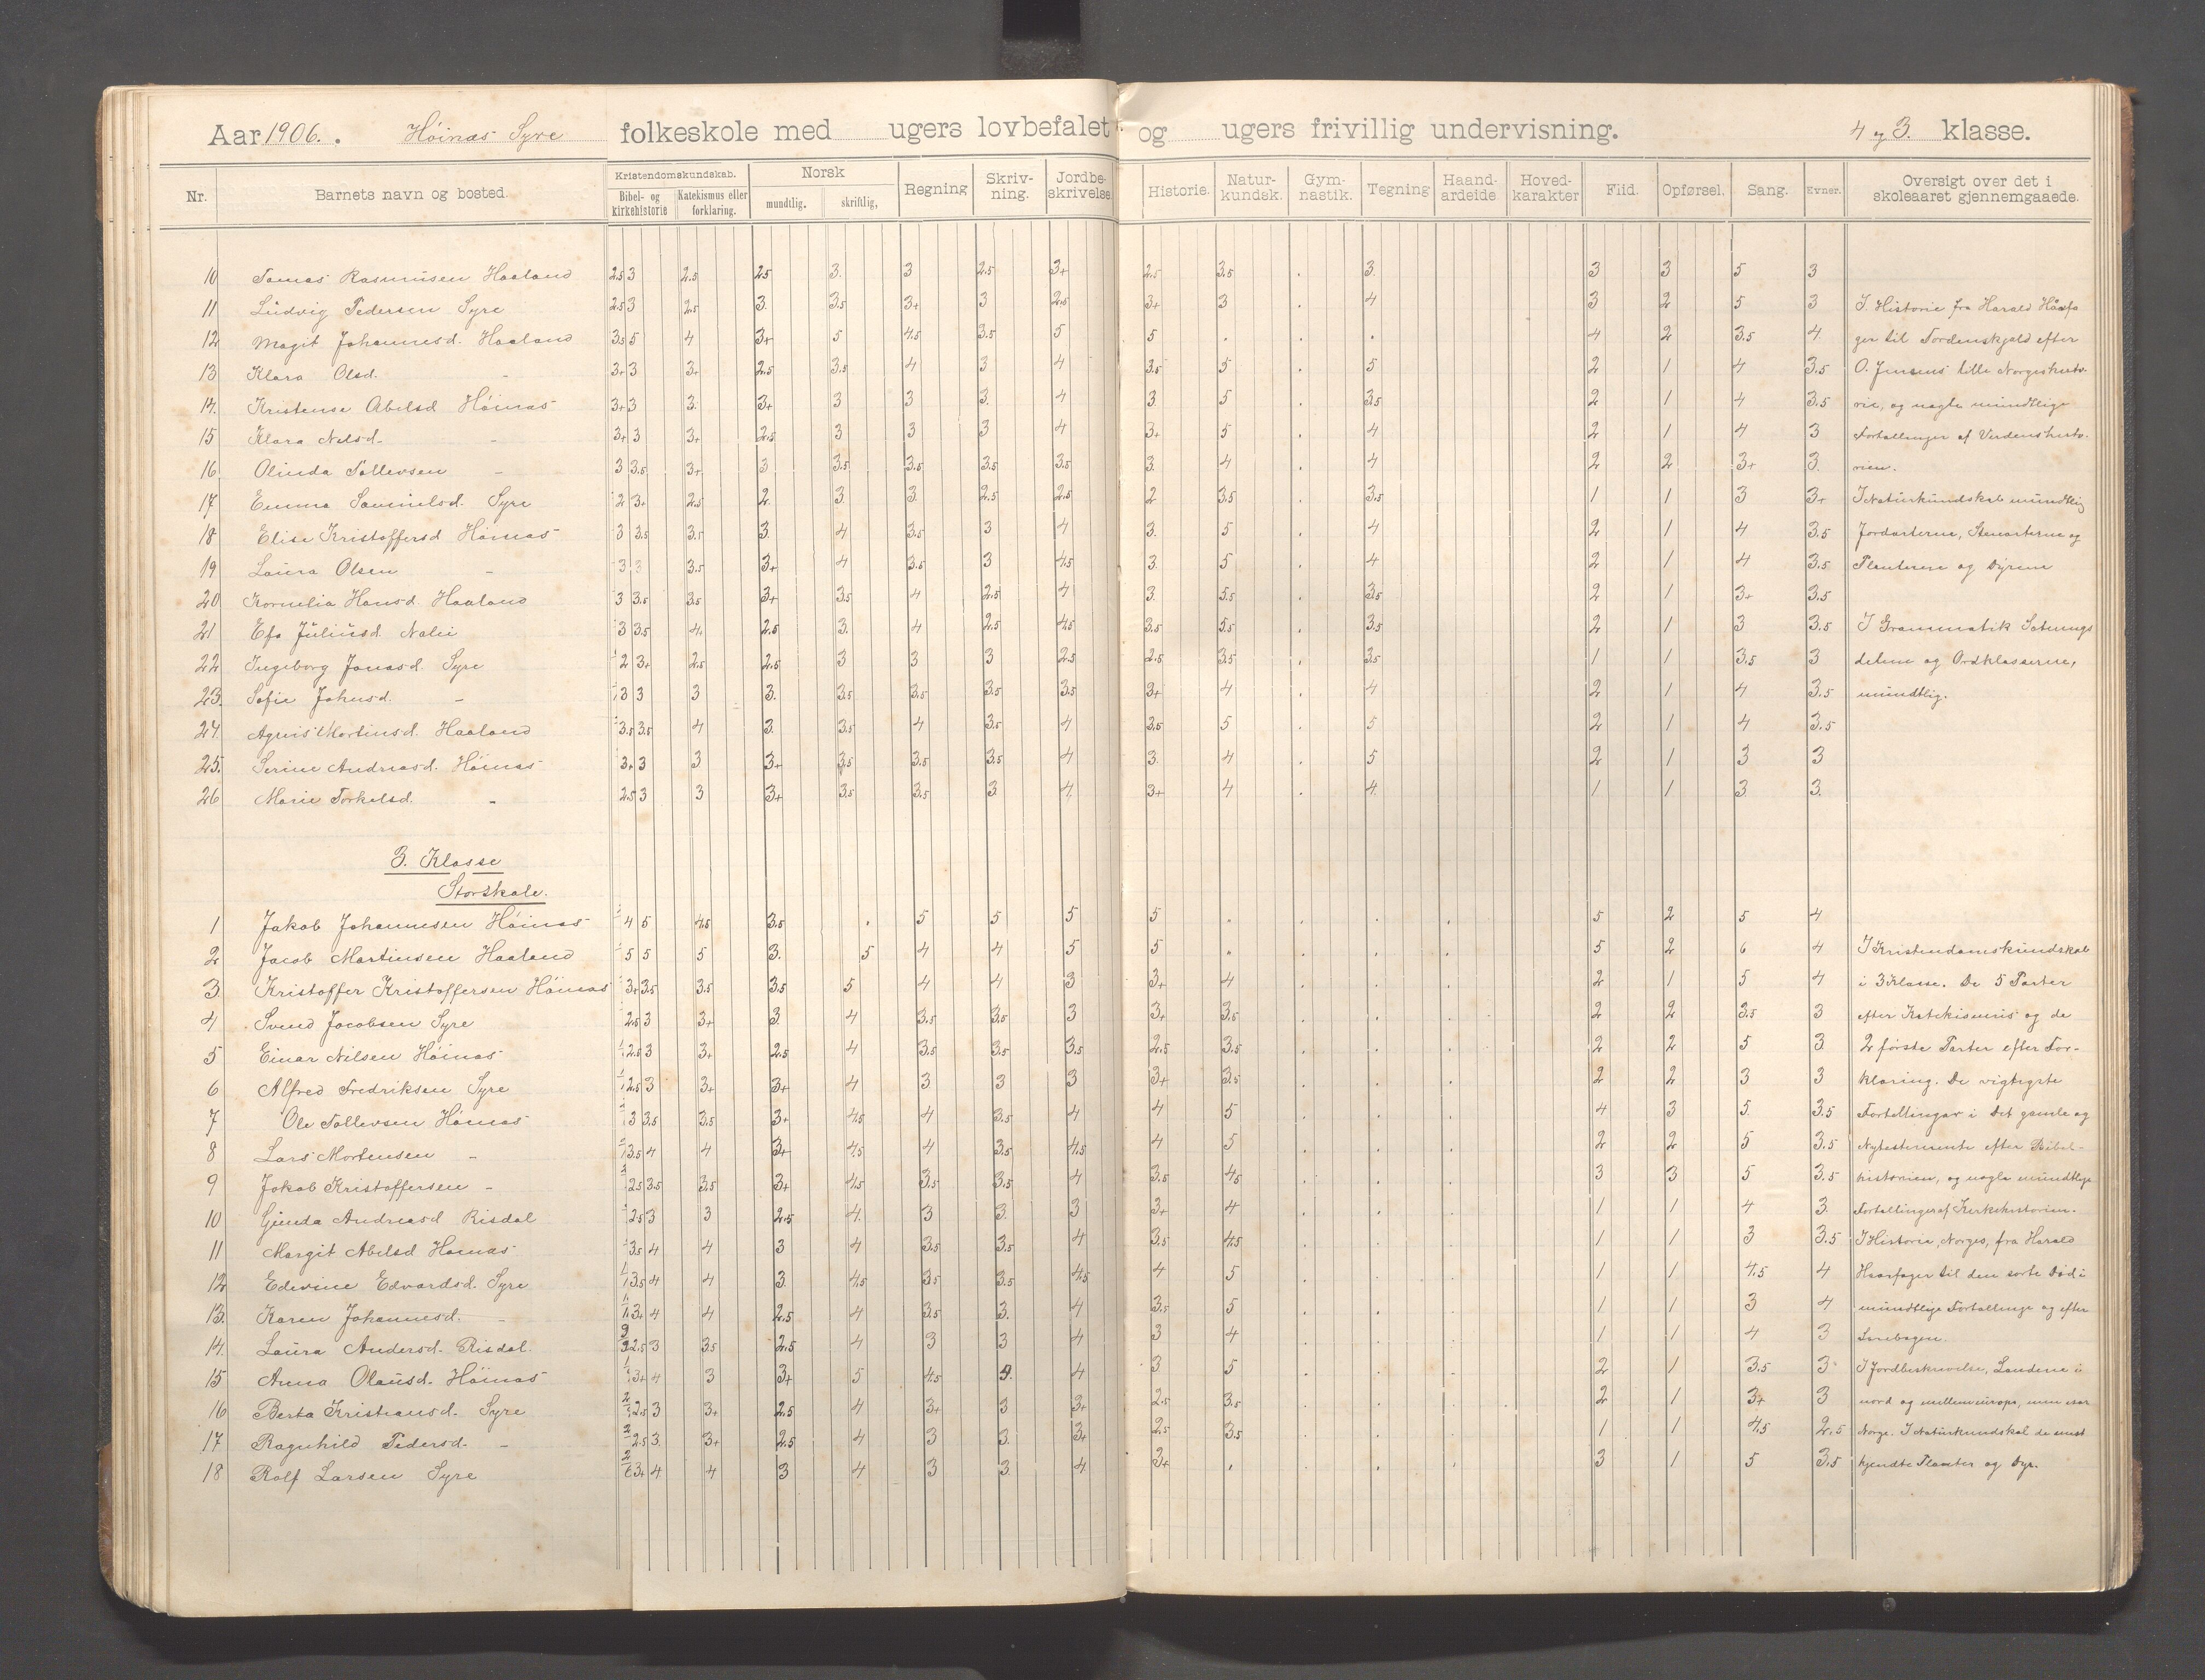 Aar 1906. Høinæs Syre folkeskole med ugers lovbefalet og ugers frivillig undervisning. 4 og 3. klasse.
Nr. Barnets navn og bosted. Kristendomskundskab. Bibel- og kirkehistorie Katekismus eller forklaring. Norsk mundtlig. skriftlig, Regning Skriv-ning. Jordbe-skrivelse. Historie. Natur-kundsk. Gym-nastik. Tegning Haand-ardeide Hoved-karakter Flid. Opførsel. Sang. Evner. Oversigt over det i skoleaaret gjennemgaaede.
10 Tomas Rasmusen Haaland 2.5 3 2.5 2.5 3. 3 2.5 3+ 2.5 3.5 . 3. 3 3 5 3
11 Ludvig Pedersen Syre 2.5 3 2.5 3. 3.5 3+ 3 2.5 3+ 3 . 4 3 2 5 3 I. Historie fra Harald Håafa
12 Magit Johannesd. Haaland 3.5 5 4 3+ 5 4.5 3.5 5 5 . . . 4 2 3.5 4 ger til Tordenskjold efter
13 Klara Olsd. - 3+ 3 3+ 2.5 3.5 4 3 4 3.5 5 . 5 2 1 4 3.5 O. Jensens lille Norgeshisto-
14. Kristense Abelsd Høinæs 3+ 3 3. 3+ 3 3 3. 4 3. 5 . 3.5 2 1 4 3.5 rie, og nogle mundtlige
15 Klara Nilsd. - 3+ 3 3+ 2.5 3 3 3 4 3+ 5 . 4 2 1 4 3 Fortellinger af Verdenshisto-
16 Olinda Tollevsen - 3 3.5 3+ 3 3.5 3.5 3.5 3.5 3. 4 . 4 2 2 3+ 3. rien.
17 Emma Samuelsd. Syre 2 3+ 2.5 2. 3. 3. 2.5 2.5 2 3.5 . 3.5 1 1 3 3+ I Naturkundskab mundtlig
18 Elise Kristoffersd Høinæs 3 3.5 3.5 3. 4 3.5 3 4 3. 5 . 4 2 1 4 3.5 Jordarterne, Stenarterne og
19 Laura Olsen - 3 3 3.5 3+ 4 3.5 3 4.5 3. 5 . 4 2 1 4 3.5 Planterne og Dyrene
20 Kornelia Hansd. Haaland 3 3.5 3.5 3+ 3.5 4 2.5 4 3. 5.5 . 3.5 2 1 3+ 3.5
21 Efa Juliusd. 3 3.5 4. 2.5 3. 4 2.5 4.5 3.5 5.5 . 3.5 2 1 3 3.5 I Grammatik Setnings
22 Ingeborg Jonasd. Syre 2 3+ 2.5 2.5 3 3 3 2.5 2.5 3.5 . 3.5 1 1 3.5 3 delene og Ordklasserne,
23. Sofie Johnsd. - 3 3 3 3. 3.5 3.5 3.5 3.5 3+ 4 . 4 2 1 4 3.5 mundtlig.
24. Agnis Martinsd. Haaland 3.5 3.5 4 3. 3.5 4 3.5 4 3.5 5 . 5 2 1 4 3.5
25. Serine Andreasd. Høinæs 3+ 3 3 3+ 3.5 3.5 3.5 4 3. 4 . 5 2 1 3 3
26 Marie Torkelsd. - 2.5 3 3 3+ 3.5 3.5 3. 4. 3+ 4 . 4. 1 1 3. 3.
3. Klasse
Storskole.
1 Jakob Johannesen Høinæs 4 5 4.5 3.5 . 5 5 5 5 . . . . 5 2 5 4
2 Jacob Martinsen Haaland 5 5 5 3. 5 4 4 5 5 . . . . 5 2 6 4 I Kristendomskundskab
3. Kristoffer Kristoffersen Høinæs 3+ 3.5 3.5 3.5 5 4 4 3 3+ 4 . . . 2 1 5 4 i 3 Klasse. De 5 Parter
4 Svend Jacobsen Syre 2.5 3 3+ 3. 4 3.5 3.5 3 3+ 3.5 . . . 2 2 3.5 3 efter Katekismus og de
5 Einar Nilsen Høinæs 2.5 3 3+ 2.5 4 3.5 3.5 3.5 2.5 3.5 . . . 2 2 5 3. 2 første Parter efter For-
6 Alfred Fredriksen Syre 2.5 3 3+ 3+ 4 3 3 3 3+ 3.5 . . . 2 2 3 3 klaring. De vigtigste
7 Ole Tollevsen Høinæs 3 3.5 3.5 3+ 4.5 4 3.5 4 4 5 . . . 4 3 5. 3.5 Fortellingar i Det gamle og
8 Lars Mortensen - 3.5 4 4 3+ 4.5 4 3.5 4.5 4 5 . . . 2 2 5 3.5 Nytestemente efter Bibel-
9 Jokob Kristoffersen - 2.5 3.5 3.5 3+ 4.5 3.5 3.5 4 3.5 4.5 . . . 3 3 5 3.5 historien, og nogle mundtlige
10 Andreasd Risdal 2.5 3 3 2.5 4. 3 3. 3 3+ 4 . . . 1 1 4 3. Fortellinger af Kirkehistorien.
11 Margit Abelsd Høinæs 3.5 4 4 3 4 3.5 3.5 4 3.5 4.5 . . . 1 1 3 3.5 I Historie, Norges, fra Harald
12 Edevine Edvardsd. Syre 3.5 4 4 3. 4.5 3.5 3.5 4.5 4 5 . . . 1 1 4.5 4 Haarfager til den sorte Død i
13. Karen Johannesd. - 3+ 4 4 2.5 4 3.5 3. 4 3.5 5 . . . 1 1 3 4 mundtlige Fortellinge og efter
14. Laura Andersd. Risdal. 2.5 3 3.5 2.5 4 3 3 4 3 4 . . . 1 1 4 3 Lesebogen.
15 Anna Olausd. Høinæs 3+ 4 3 3+ 5 4.5 9. 4 3 5 . . . 2 1 3.5 3 I Jordbeskrivelse, Landene i
16 Berta Kristiansd. Syre 2.5 3 3+ 2.5 4 3+ 3 3+ 2.5 3.5 . . . 2 1 3+ 3 nord og mellemeuropa,
17 Ragnhild Pedersd. - 2.5 3. 3+ 2.5 4 3 3. 3+ 2.5 3.5 . . . 1 1 4.5 2.5 Norge. I Naturkundskab de mest
18 Rolf Larsen Syre 3+ 4 4 3 4 3 3. 4 3+ . . . . 3 1 5 3.5 kjendte Planter og Dyr.